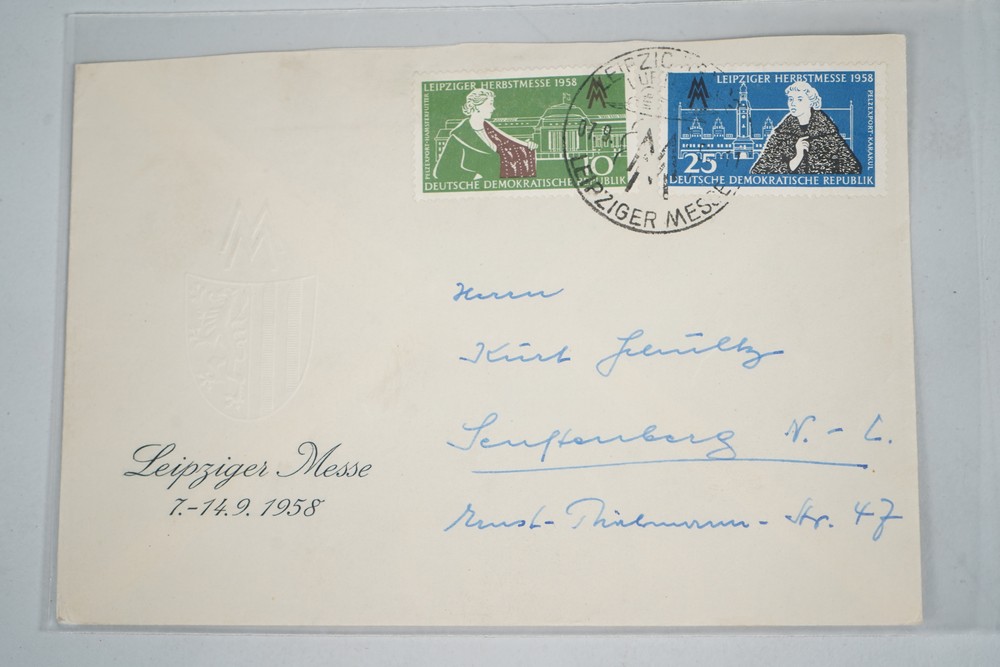 LEIPZIGER HERBSTMESSE 1958
PELZEXPORT-HAMSTERFUTTER
10
DEUTSCHE DEMOKRATISCHE REPUBLIK
LEIPZIGER HERBSTMESSE 1958
PELZEXPORT-KARAKUL
25
DEUTSCHE DEMOKRATISCHE REPUBLIK
LEIPZIG
07.9.
LEIPZIGER MESSE
Herrn
Kurt Schultz
Senftenberg N.-L.
Ernst-Thälmann-Str. 47
Leipziger Messe
7.-14.9.1958